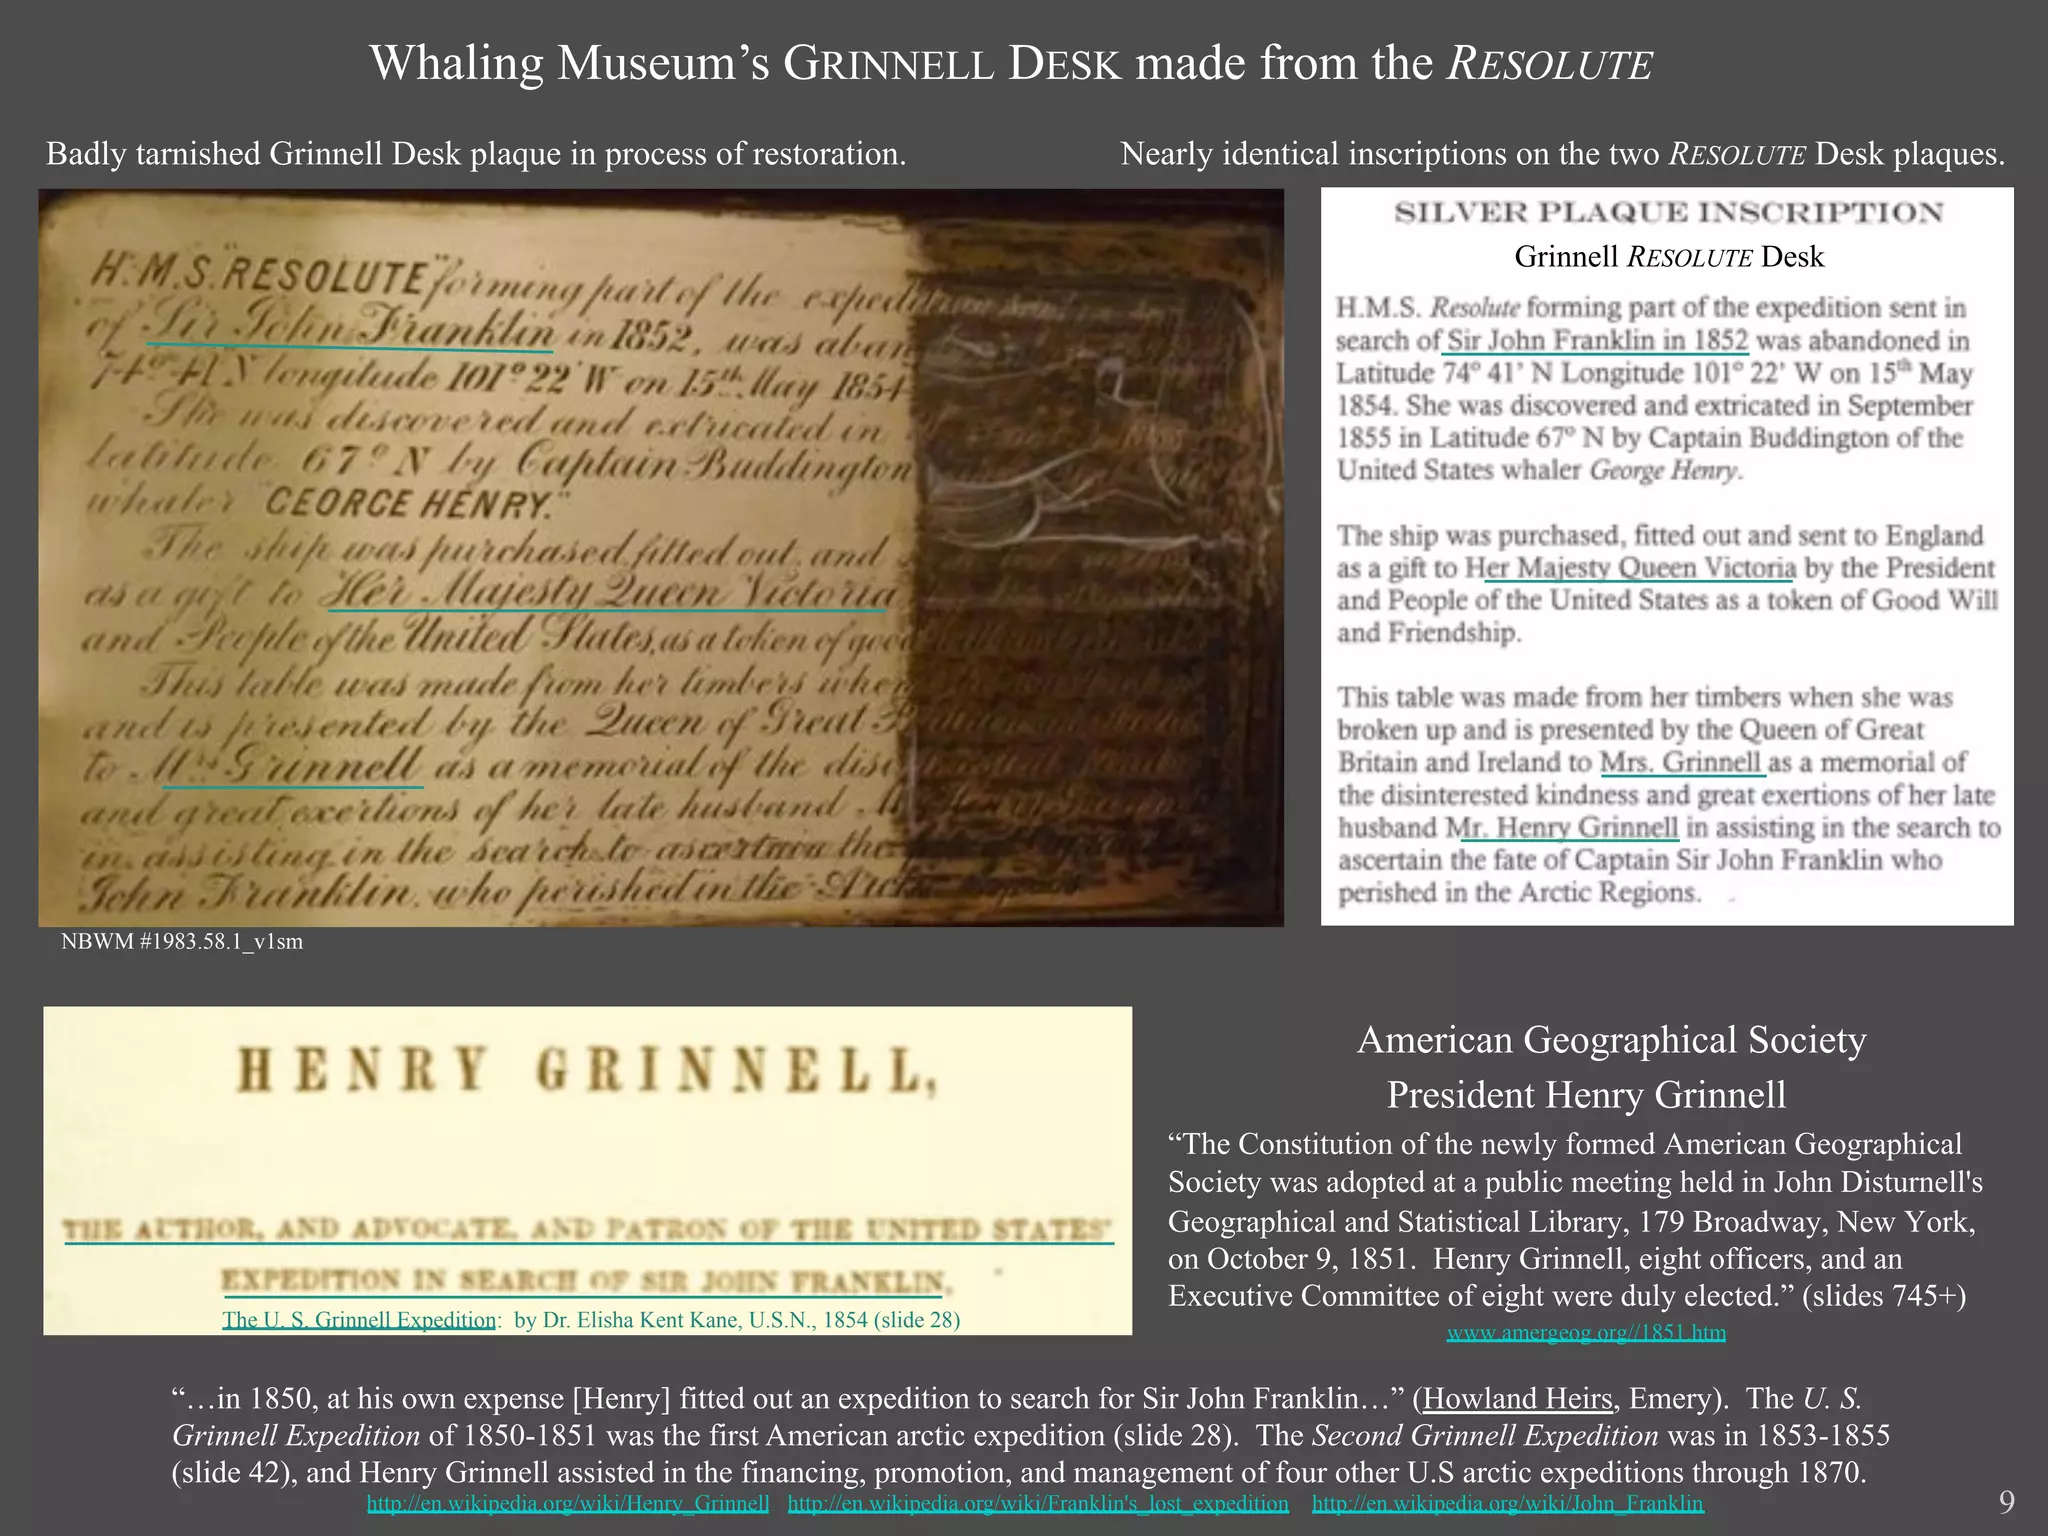 Whaling Museum’s GRINNELL DESK made from the RESOLUTE
Badly tarnished Grinnell Desk plaque in process of restoration.
Nearly identical inscriptions on the two RESOLUTE Desk plaques.
H.M.S. "RESOLUTE" forming part of the expedition sent in
of Sir John Franklin in 1852, was aban
74º41' N longitude 101º22' W on 15th May 1854
She was discovered and extricated in
latitude 67º N by Captain Buddington
whaler "GEORGE HENRY."
The ship was purchased, fitted out, and
as a gift to Her Majesty Queen Victoria
and People of the United States, as a token of good
This table was made from her timbers when
and is presented by the Queen of Great
to Mrs Grinnell as a memorial of the disi
and great exertions of her late husband
in assisting in the search to ascertain the
John Franklin, who perished in the Arctic
NBWM #1983.58.1_v1sm
SILVER PLAQUE INSCRIPTION
Grinnell RESOLUTE Desk
H.M.S. Resolute forming part of the expedition sent in
search of Sir John Franklin in 1852 was abandoned in
Latitude 74º 41’ N Longitude 101º 22’ W on 15th May
1854. She was discovered and extricated in September
1855 in Latitude 67º N by Captain Buddington of the
United States whaler George Henry.
The ship was purchased, fitted out and sent to England
as a gift to Her Majesty Queen Victoria by the President
and People of the United States as a token of Good Will
and Friendship.
This table was made from her timbers when she was
broken up and is presented by the Queen of Great
Britain and Ireland to Mrs. Grinnell as a memorial of
the disinterested kindness and great exertions of her late
husband Mr. Henry Grinnell in assisting in the search to
ascertain the fate of Captain Sir John Franklin who
perished in the Arctic Regions.
HENRY GRINNELL,
THE AUTHOR, AND ADVOCATE, AND PATRON OF THE UNITED STATES'
EXPEDITION IN SEARCH OF SIR JOHN FRANKLIN.
The U. S. Grinnell Expedition:  by Dr. Elisha Kent Kane, U.S.N., 1854 (slide 28)
American Geographical Society
President Henry Grinnell
“The Constitution of the newly formed American Geographical
Society was adopted at a public meeting held in John Disturnell's
Geographical and Statistical Library, 179 Broadway, New York,
on October 9, 1851.  Henry Grinnell, eight officers, and an
Executive Committee of eight were duly elected.” (slides 745+)
www.amergeog.org//1851.htm
“…in 1850, at his own expense [Henry] fitted out an expedition to search for Sir John Franklin…” (Howland Heirs, Emery).  The U. S.
Grinnell Expedition of 1850-1851 was the first American arctic expedition (slide 28).  The Second Grinnell Expedition was in 1853-1855
(slide 42), and Henry Grinnell assisted in the financing, promotion, and management of four other U.S arctic expeditions through 1870.
http://en.wikipedia.org/wiki/Henry_Grinnell http://en.wikipedia.org/wiki/Franklin's_lost_expedition http://en.wikipedia.org/wiki/John_Franklin
9